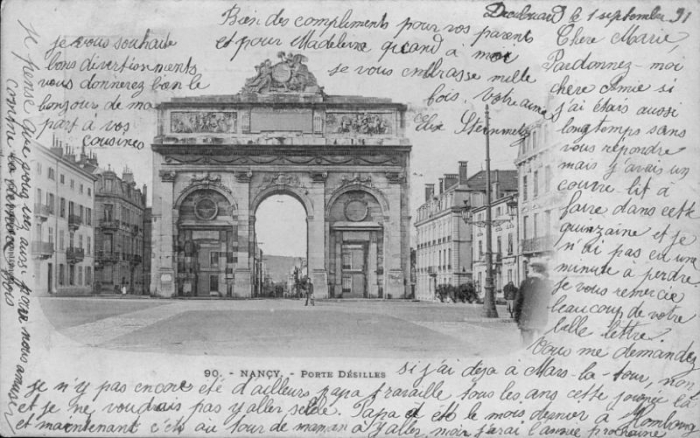 le 1 septembre
Chere Marie,
Pardonnez-moi
chere Amie si
j'ai étais aussi
longtemps sans
vous répondre
mais j'avais un
couvre lit à
faire dans cette
quinzaine et je
n'ai pas eu un
minute a perdre.
Je vous remercie
beaucoup de votre
belle lettre.
Vous me demandez
si j'ai deja a Mars-la-tour, non
je n'y pas encore été d'ailleurs papa travaille tous les ans cette journée là
et je ne voudrais pas y aller seule. Papa a été le mois dernier à
et maintenant c'est au tour de maman a y aller moi j'irai l'année prochaine
je pense que vous
Bien des compliments pour vos parents
et pour Madeleine quand à moi
je vous embrasse mille
fois. Votre amie
Je vous souhaite
bons divertissements
vous donnerez bien le
bonjour de ma
part à vos
cousines
90. - NANCY. - PORTE DÉSILLES